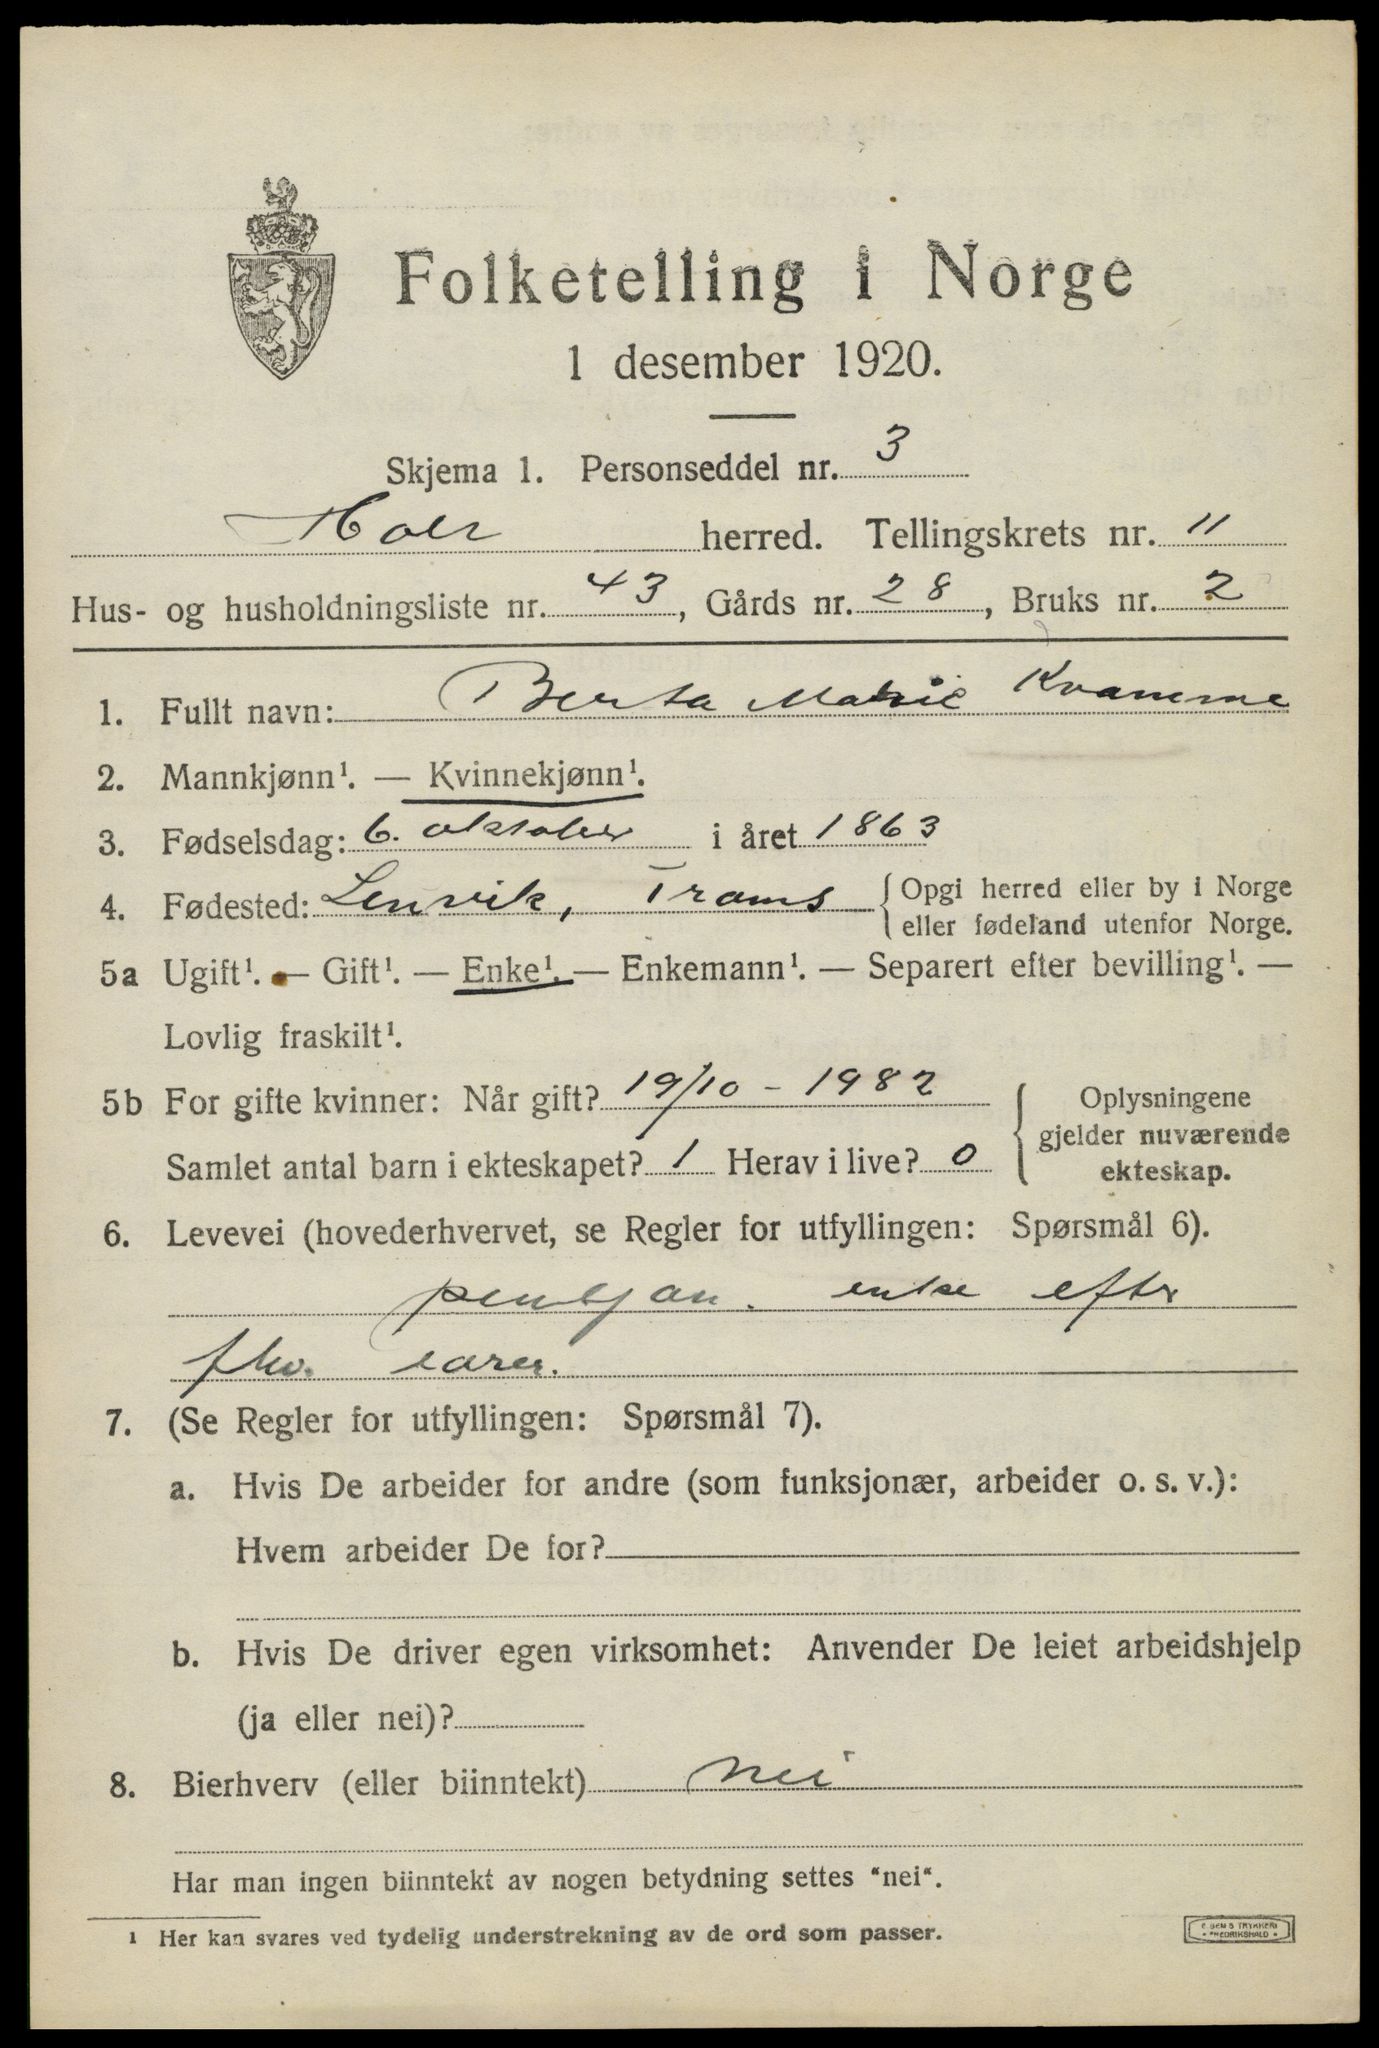 Folketelling i Norge
1 desember 1920.
Skjema 1. Personseddel nr. 3
herred. Tellingskrets nr. 11
Hus- og husholdningsliste nr. 43, Gårds nr. 28, Bruks nr. 2
1. Fullt navn: Berta Marie Kvamme
2. Mannkjønn¹. — Kvinnekjønn¹.
3. Fødselsdag: 6. oktober i året 1863
4. Fødested: Lenvik, Troms { Opgi herred eller by i Norge
eller fødeland utenfor Norge.
5a Ugift¹. — Gift¹. — Enke¹. — Enkemann¹. — Separert efter bevilling¹. —
Lovlig fraskilt¹.
5b For gifte kvinner: Når gift? 19/10 - 1982
Samlet antal barn i ekteskapet? 1 Herav i live? 0
{ Oplysningene
gjelder nuværende
ekteskap.
6. Levevei (hovederhvervet, se Regler for utfyllingen: Spørsmål 6).
pensjon. enke efter
fhv. lærer.
7. (Se Regler for utfyllingen: Spørsmål 7).
a. Hvis De arbeider for andre (som funksjonær, arbeider o. s. v.):
Hvem arbeider De for?
b. Hvis De driver egen virksomhet: Anvender De leiet arbeidshjelp
(ja eller nei)?
8. Bierhverv (eller biinntekt) nei
Har man ingen biinntekt av nogen betydning settes "nei".
1 Her kan svares ved tydelig understrekning av de ord som passer.
TRYKKERI
FREDRIKSHALD